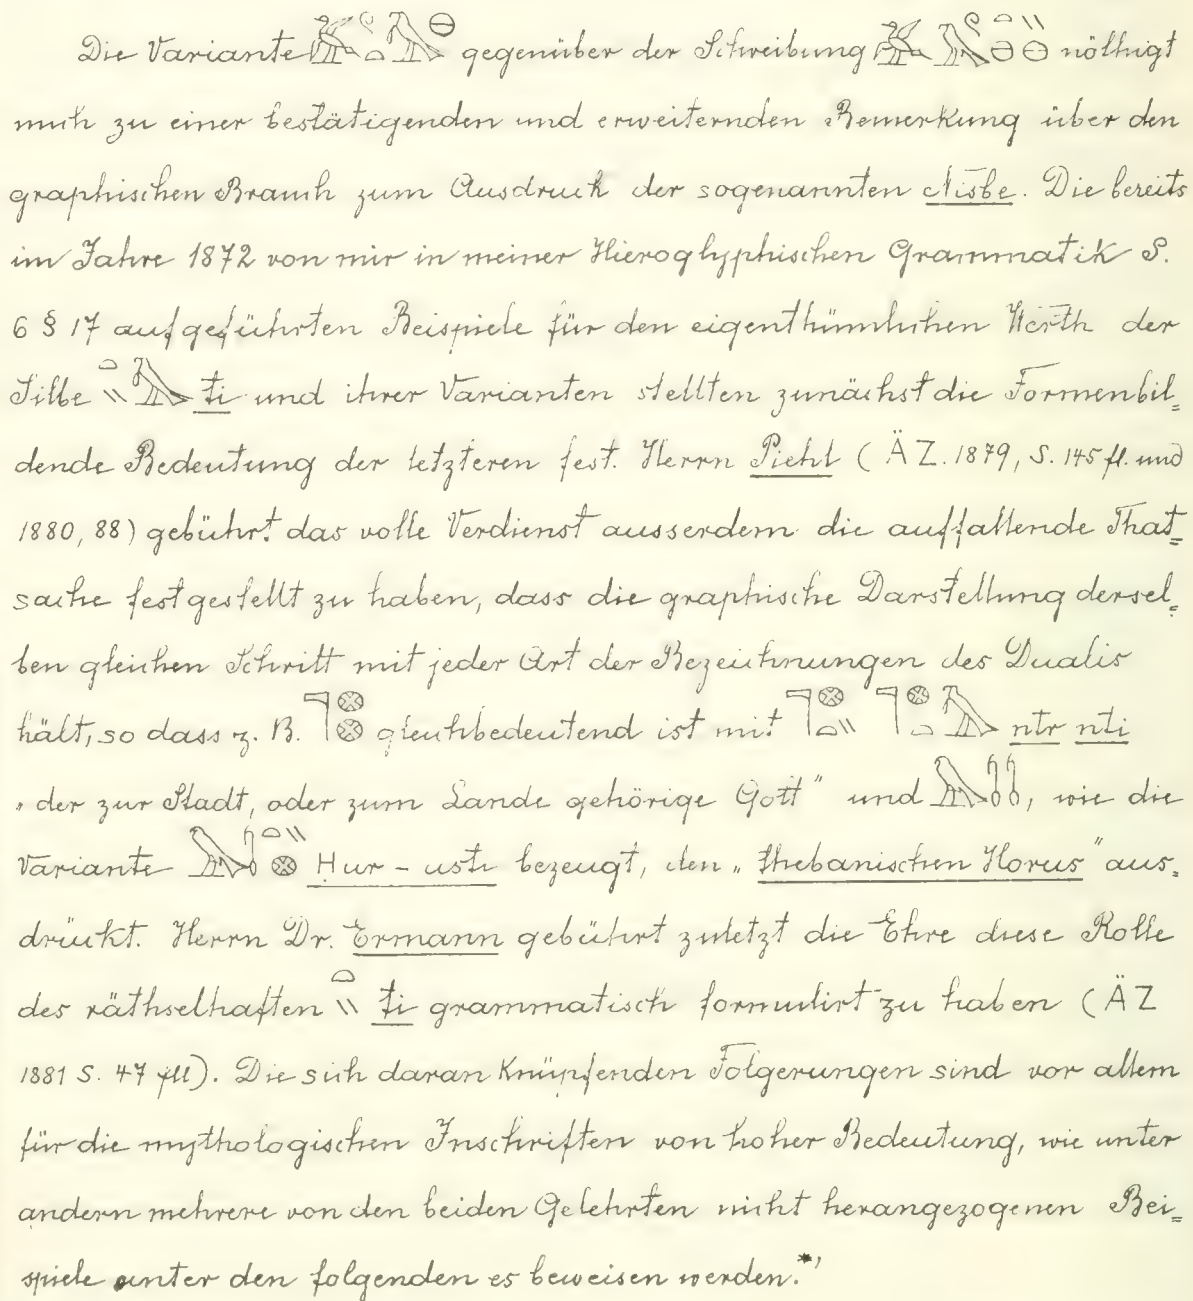 Die Variante gegenüber der Schreibung nöthigt
mich zu einer bestätigenden und erweiternden Bemerkung über den
graphischen Brauch zum Ausdruck der sogenannten Nisbe. Die bereits
im Jahre 1872 von mir in meiner Hieroglyphischen Grammatik S.
6 § 17 aufgeführten Beispiele für den eigenthümlichen Werth der
Silbe ti und ihrer Varianten stellten zunächst die Formenbil=
dende Bedeutung der letzteren fest. Herrn Piehl (ÄZ. 1879, S. 145 fl. und
1880, 88) gebührt das volle Verdienst ausserdem die auffallende That=
sache festgestellt zu haben, dass die graphische Darstellung dersel=
ben gleichen Schritt mit jeder Art der Bezeichnungen des Dualis
hält, so dass z. B. gleichbedeutend ist mit ntr nti
„der zur Stadt, oder zum Lande gehörige Gott" und , wie die
Variante Hur-usti bezeugt, den „thebanischen Horus" aus=
drückt. Herrn Dr. Ermann gebührt zuletzt die Ehre diese Rolle
des räthselhaften ti grammatisch formulirt zu haben (ÄZ
1881 S. 47 fll). Die sich daran knüpfenden Folgerungen sind vor allem
für die mythologischen Inschriften von hoher Bedeutung, wie unter
andern mehrere von den beiden Gelehrten nicht herangezogenen Bei=
spiele unter den folgenden es beweisen werden.*)